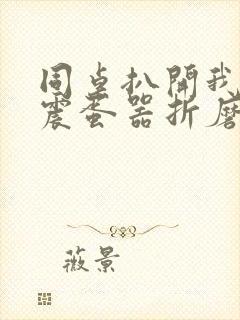 同桌扒開我
震蛋器折磨
薇景